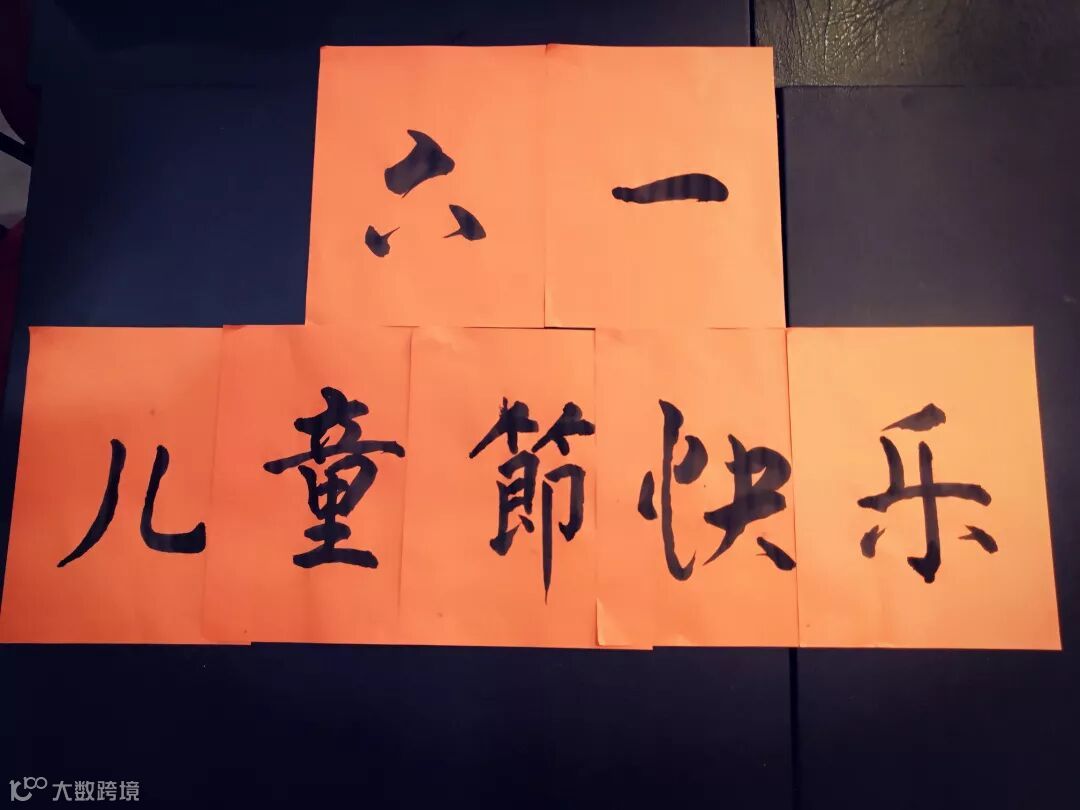 六一
儿童節快乐
大数跨境